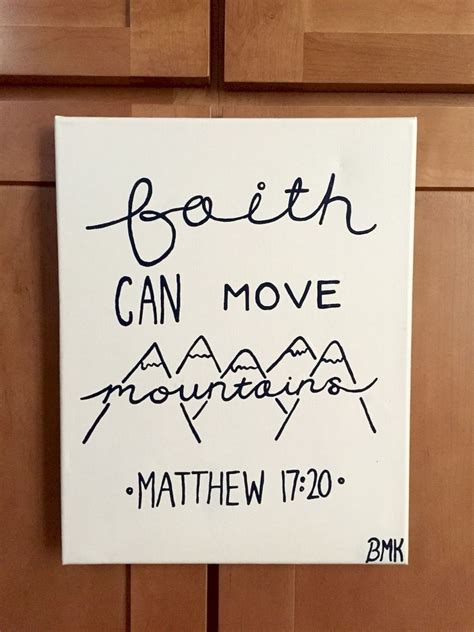 faith
CAN MOVE
mountains
·MATTHEW 17:20·
BMK